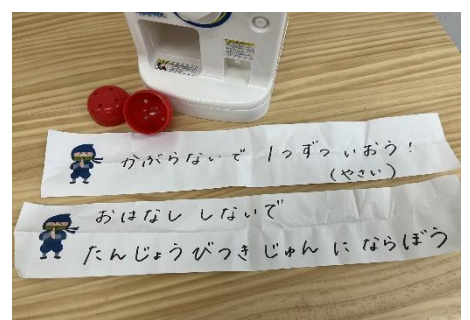 かぶらないで 1つずついおう!
(やさい)
おはなし しないで
たんじょうびつき じゅん に ならぼう